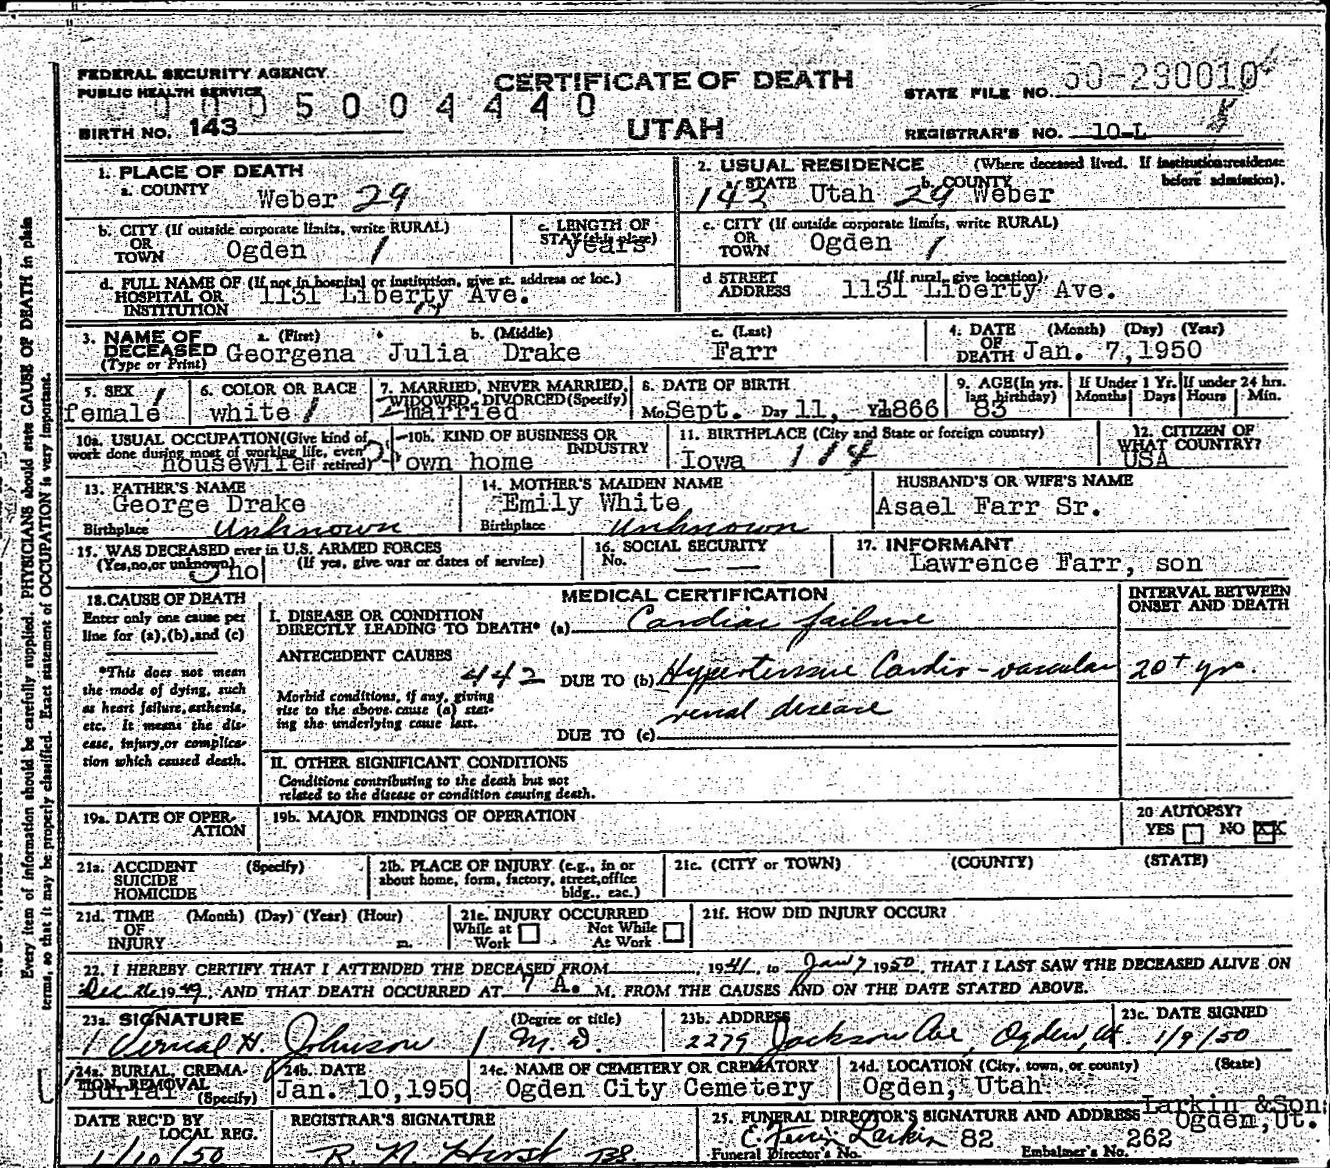 FEDERAL SECURITY AGENCY
PUBLIC HEALTH SERVICE
CERTIFICATE OF DEATH
STATE FILE NO. 50-290010
5 0 0 4 4 4 0
BIRTH NO. 143
UTAH
REGISTRAR'S NO. 10-L
1. PLACE OF DEATH
a. COUNTY Weber 29
2. USUAL RESIDENCE (Where deceased lived. If institution:residence before admission).
a. STATE 143 Utah 29 b. COUNTY Weber
b. CITY (If outside corporate limits, write RURAL) OR TOWN Ogden 1
c. LENGTH OF STAY (this place) years
c. CITY (If outside corporate limits, write RURAL) OR TOWN Ogden 1
d. FULL NAME OF (If not in hospital or institution, give st. address or loc.) HOSPITAL OR INSTITUTION 1131 Liberty Ave.
d STREET ADDRESS (If rural, give location) 1131 Liberty Ave.
3. NAME OF DECEASED (Type or Print) a. (First) b. (Middle) c. (Last)
Georgena Julia Drake Farr
4. DATE OF DEATH (Month) (Day) (Year) Jan. 7,1950
5. SEX 1 female
6. COLOR OR RACE white 1
7. MARRIED, NEVER MARRIED, WIDOWED, DIVORCED (Specify) 2 married
8. DATE OF BIRTH Mo Sept. Day 11, Yr 1866
9. AGE (In yrs. last birthday) 83
If Under 1 Yr. Months Days
If under 24 hrs. Hours Min.
10a. USUAL OCCUPATION (Give kind of work done during most of working life, even if retired) housewife
10b. KIND OF BUSINESS OR INDUSTRY own home
11. BIRTHPLACE (City and State or foreign country) Iowa 114
12. CITIZEN OF WHAT COUNTRY? USA
13. FATHER'S NAME George Drake
Birthplace Unknown
14. MOTHER'S MAIDEN NAME Emily White
Birthplace Unknown
HUSBAND'S OR WIFE'S NAME
Asael Farr Sr.
15. WAS DECEASED ever in U.S. ARMED FORCES
(Yes,no,or unknown) no (If yes, give war or dates of service)
16. SOCIAL SECURITY No. — —
17. INFORMANT
Lawrence Farr, son
18. CAUSE OF DEATH
Enter only one cause per line for (a),(b),and (c)
*This does not mean the mode of dying, such as heart failure, asthenia, etc. It means the disease, injury, or complication which caused death.
MEDICAL CERTIFICATION
INTERVAL BETWEEN ONSET AND DEATH
I. DISEASE OR CONDITION DIRECTLY LEADING TO DEATH* (a) Cardiac failure
ANTECEDENT CAUSES
442 DUE TO (b) Hypertensive Cardio-vascular renal disease 20+ yrs.
Morbid conditions, if any, giving rise to the above cause (a) stating the underlying cause last.
DUE TO (c)
II. OTHER SIGNIFICANT CONDITIONS
Conditions contributing to the death but not related to the disease or condition causing death.
19a. DATE OF OPERATION
19b. MAJOR FINDINGS OF OPERATION
20 AUTOPSY?
YES NO XX
21a. ACCIDENT SUICIDE HOMICIDE (Specify)
21b. PLACE OF INJURY (e.g., in or about home, form, factory, street,office bldg., eac.)
21c. (CITY or TOWN) (COUNTY) (STATE)
21d. TIME OF INJURY (Month) (Day) (Year) (Hour) m.
21e. INJURY OCCURRED
While at Work Not While At Work
21f. HOW DID INJURY OCCUR?
22. I HEREBY CERTIFY THAT I ATTENDED THE DECEASED FROM , 1941, to Jan 7 1950, THAT I LAST SAW THE DECEASED ALIVE ON
Dec. 1949, AND THAT DEATH OCCURRED AT 7 A. M. FROM THE CAUSES AND ON THE DATE STATED ABOVE.
23a. SIGNATURE (Degree or title)
Vernal H. Johnson M.D.
23b. ADDRESS
2279 Jackson Ave, Ogden, Ut.
23c. DATE SIGNED
1/9/50
24a. BURIAL, CREMATION, REMOVAL (Specify) Burial
24b. DATE
Jan. 10,1950
24c. NAME OF CEMETERY OR CREMATORY
Ogden City Cemetery
24d. LOCATION (City, town, or county) (State)
Ogden, Utah
DATE REC'D BY LOCAL REG.
1/10/50
REGISTRAR'S SIGNATURE
R. N. Hirst
25. FUNERAL DIRECTOR'S SIGNATURE AND ADDRESS Larkin &Sons
Ogden,Ut.
Larkin 82 262
Funeral Director's No. Embalmer's No.
Every item of information should be carefully supplied. PHYSICIANS should state CAUSE OF DEATH in plain
terms, so that it may be properly classified. Exact statement of OCCUPATION is very important.